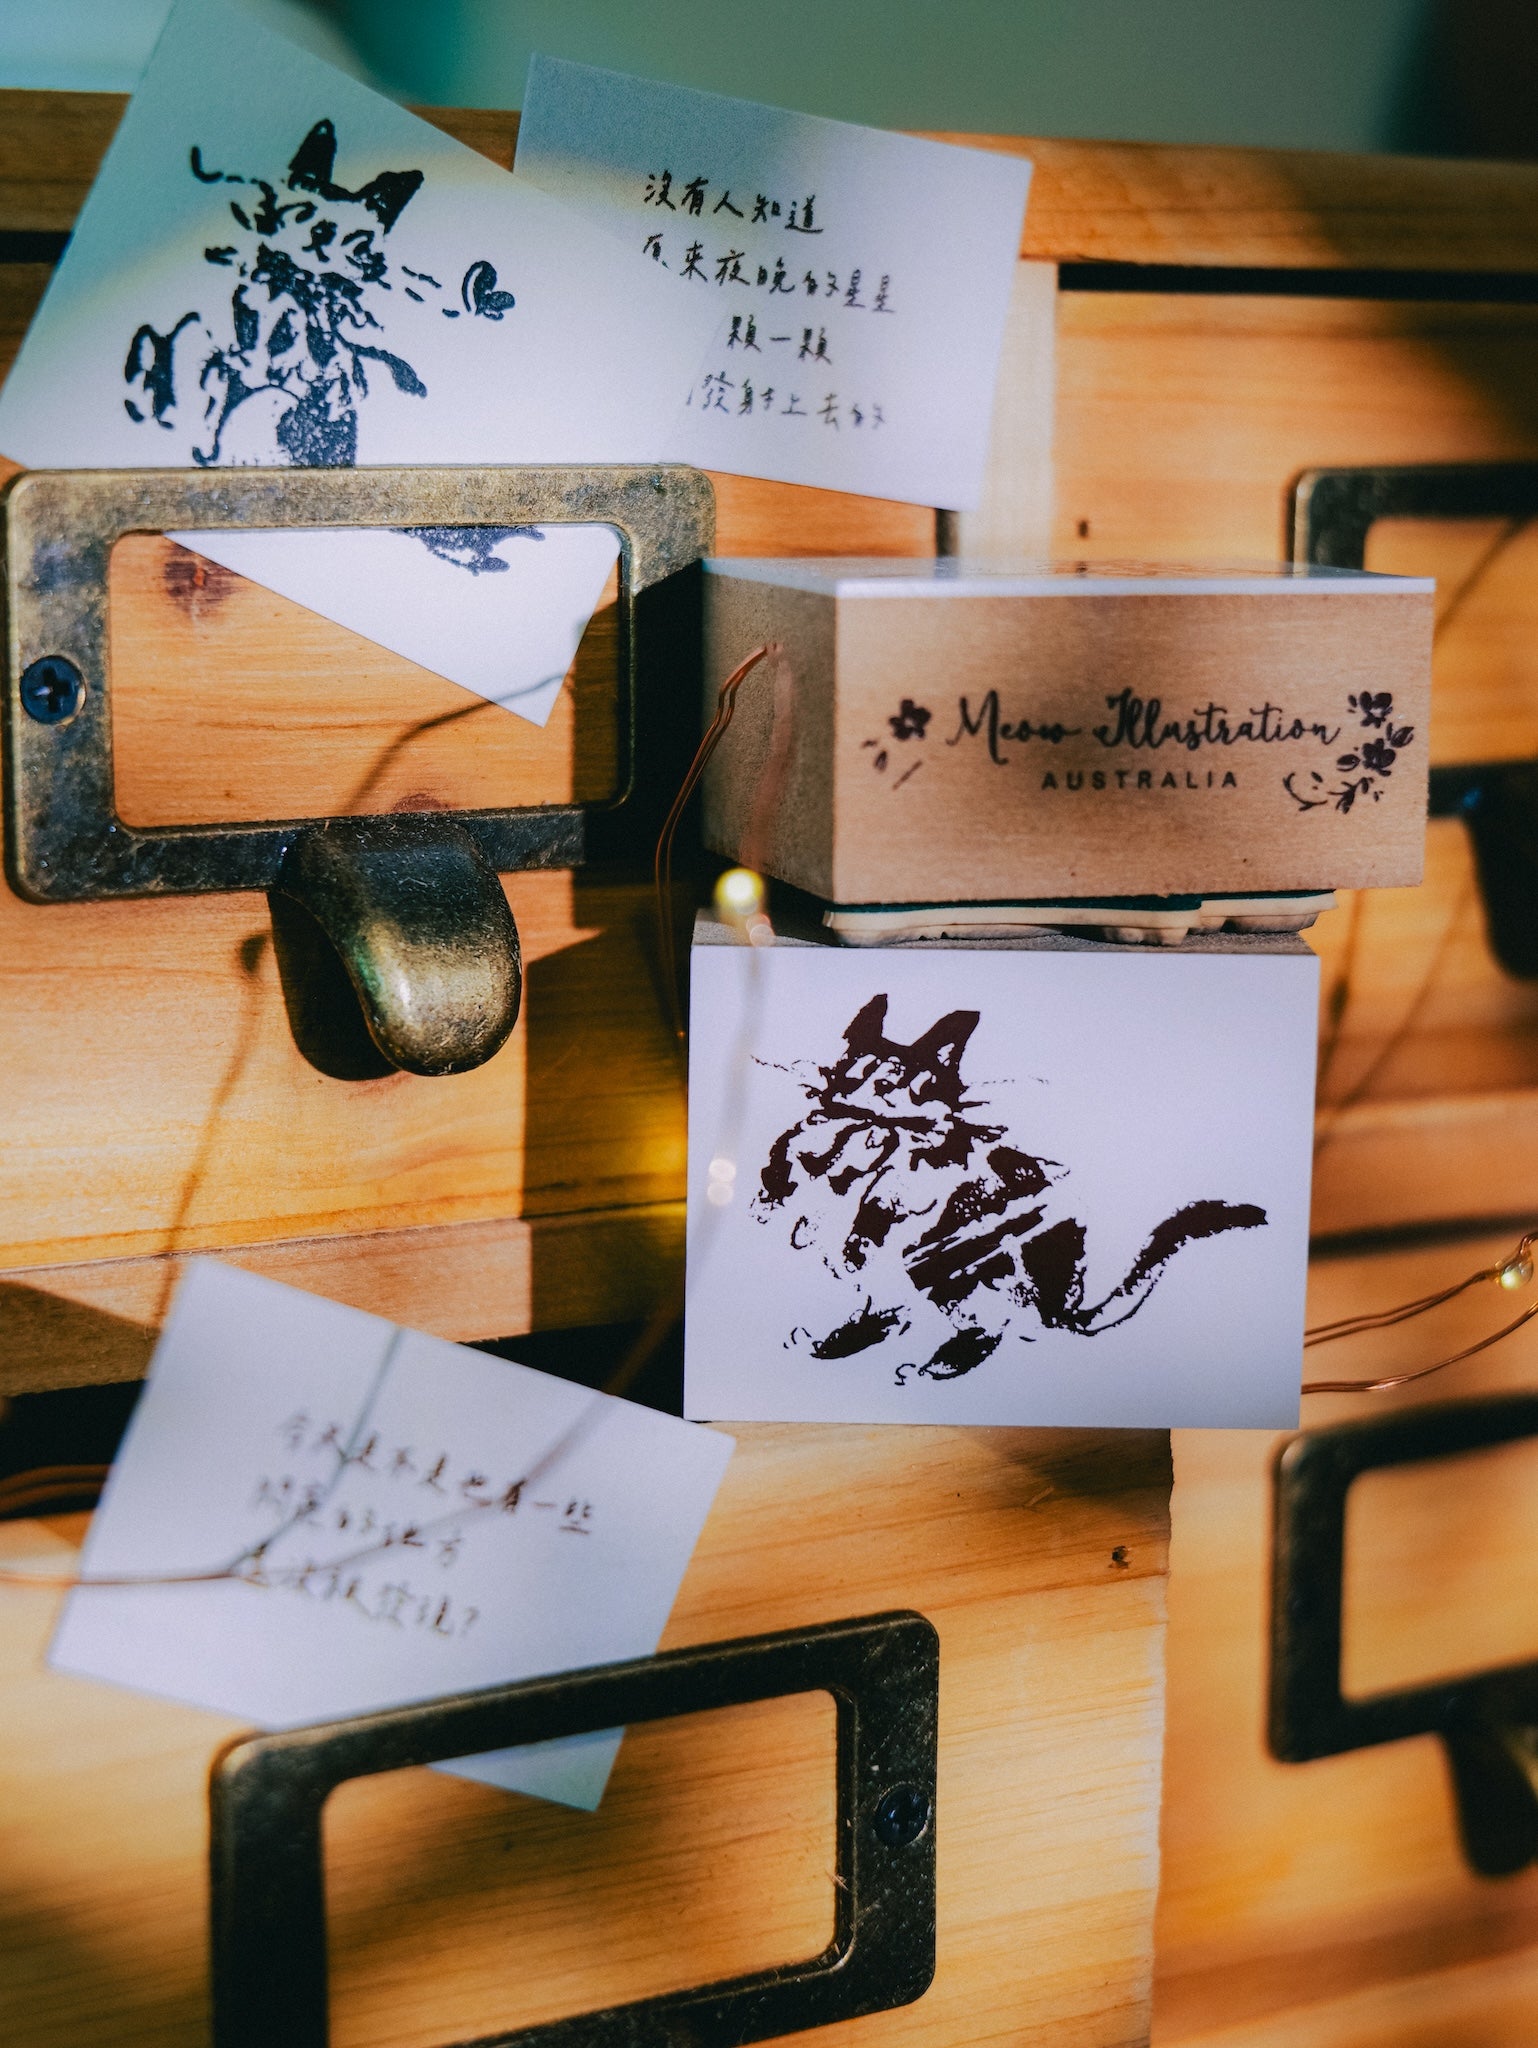 沒有人知道
原來夜晚的星星
顆一顆
發射上去的
Meow Illustration
AUSTRALIA
今天是不是也有一些
閃亮的地方
還沒被發現?